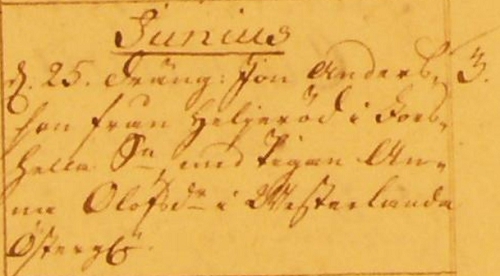 Junius
d. 25. Dräng: Jon Anders, 3.
son från Heljeröd i Fors,
hella Sn, med Pigan An,
na Olofsdr i Westerlanda
Östergd.